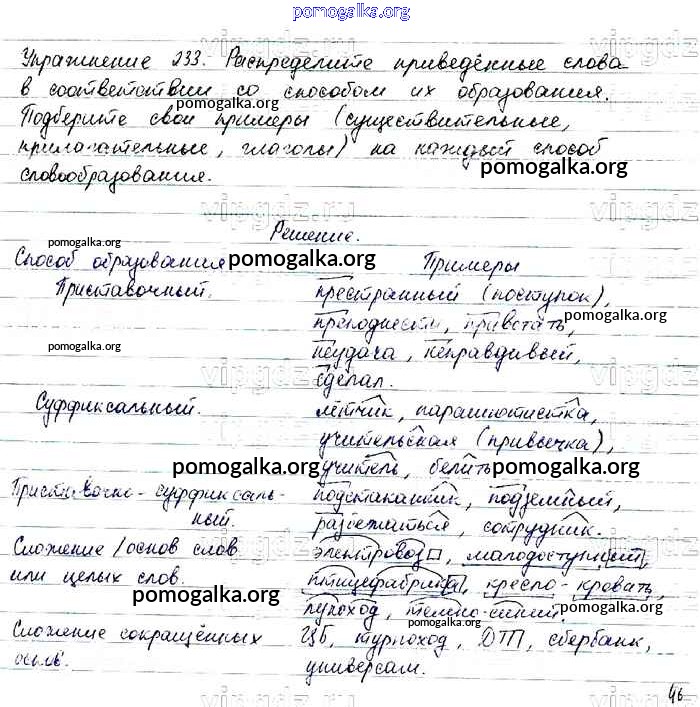 pomogalka.org
Упражнение 233. Распределите приведённые слова
в соответствии со способом их образования.
pomogalka.org
Подберите свои примеры (существительные,
прилагательные, глаголы) на каждый способ
словообразования.
pomogalka.org
Решение.
pomogalka.org
Способ образования pomogalka.org Примеры
Приставочный. престранный (поступок),
преподнести, привстать,
pomogalka.org
pomogalka.org
неудача, неправдивый,
сделал.
Суффиксальный. лётчик, парашютистка,
учительская (привычка),
учитель, белить
pomogalka.org pomogalka.org
Приставочно-суффиксаль- подстаканник, подземный,
ный. разбежаться, сотрудник.
Сложение основ слов электровоз, малодоступный,
или целых слов. птицефабрика, кресло-кровать,
pomogalka.org
луноход, темно-синий.
Сложение сокращённых ЦБ, турпоход, ДТП, сбербанк,
основ. универсам.
pomogalka.org
46
vipgdz.ru